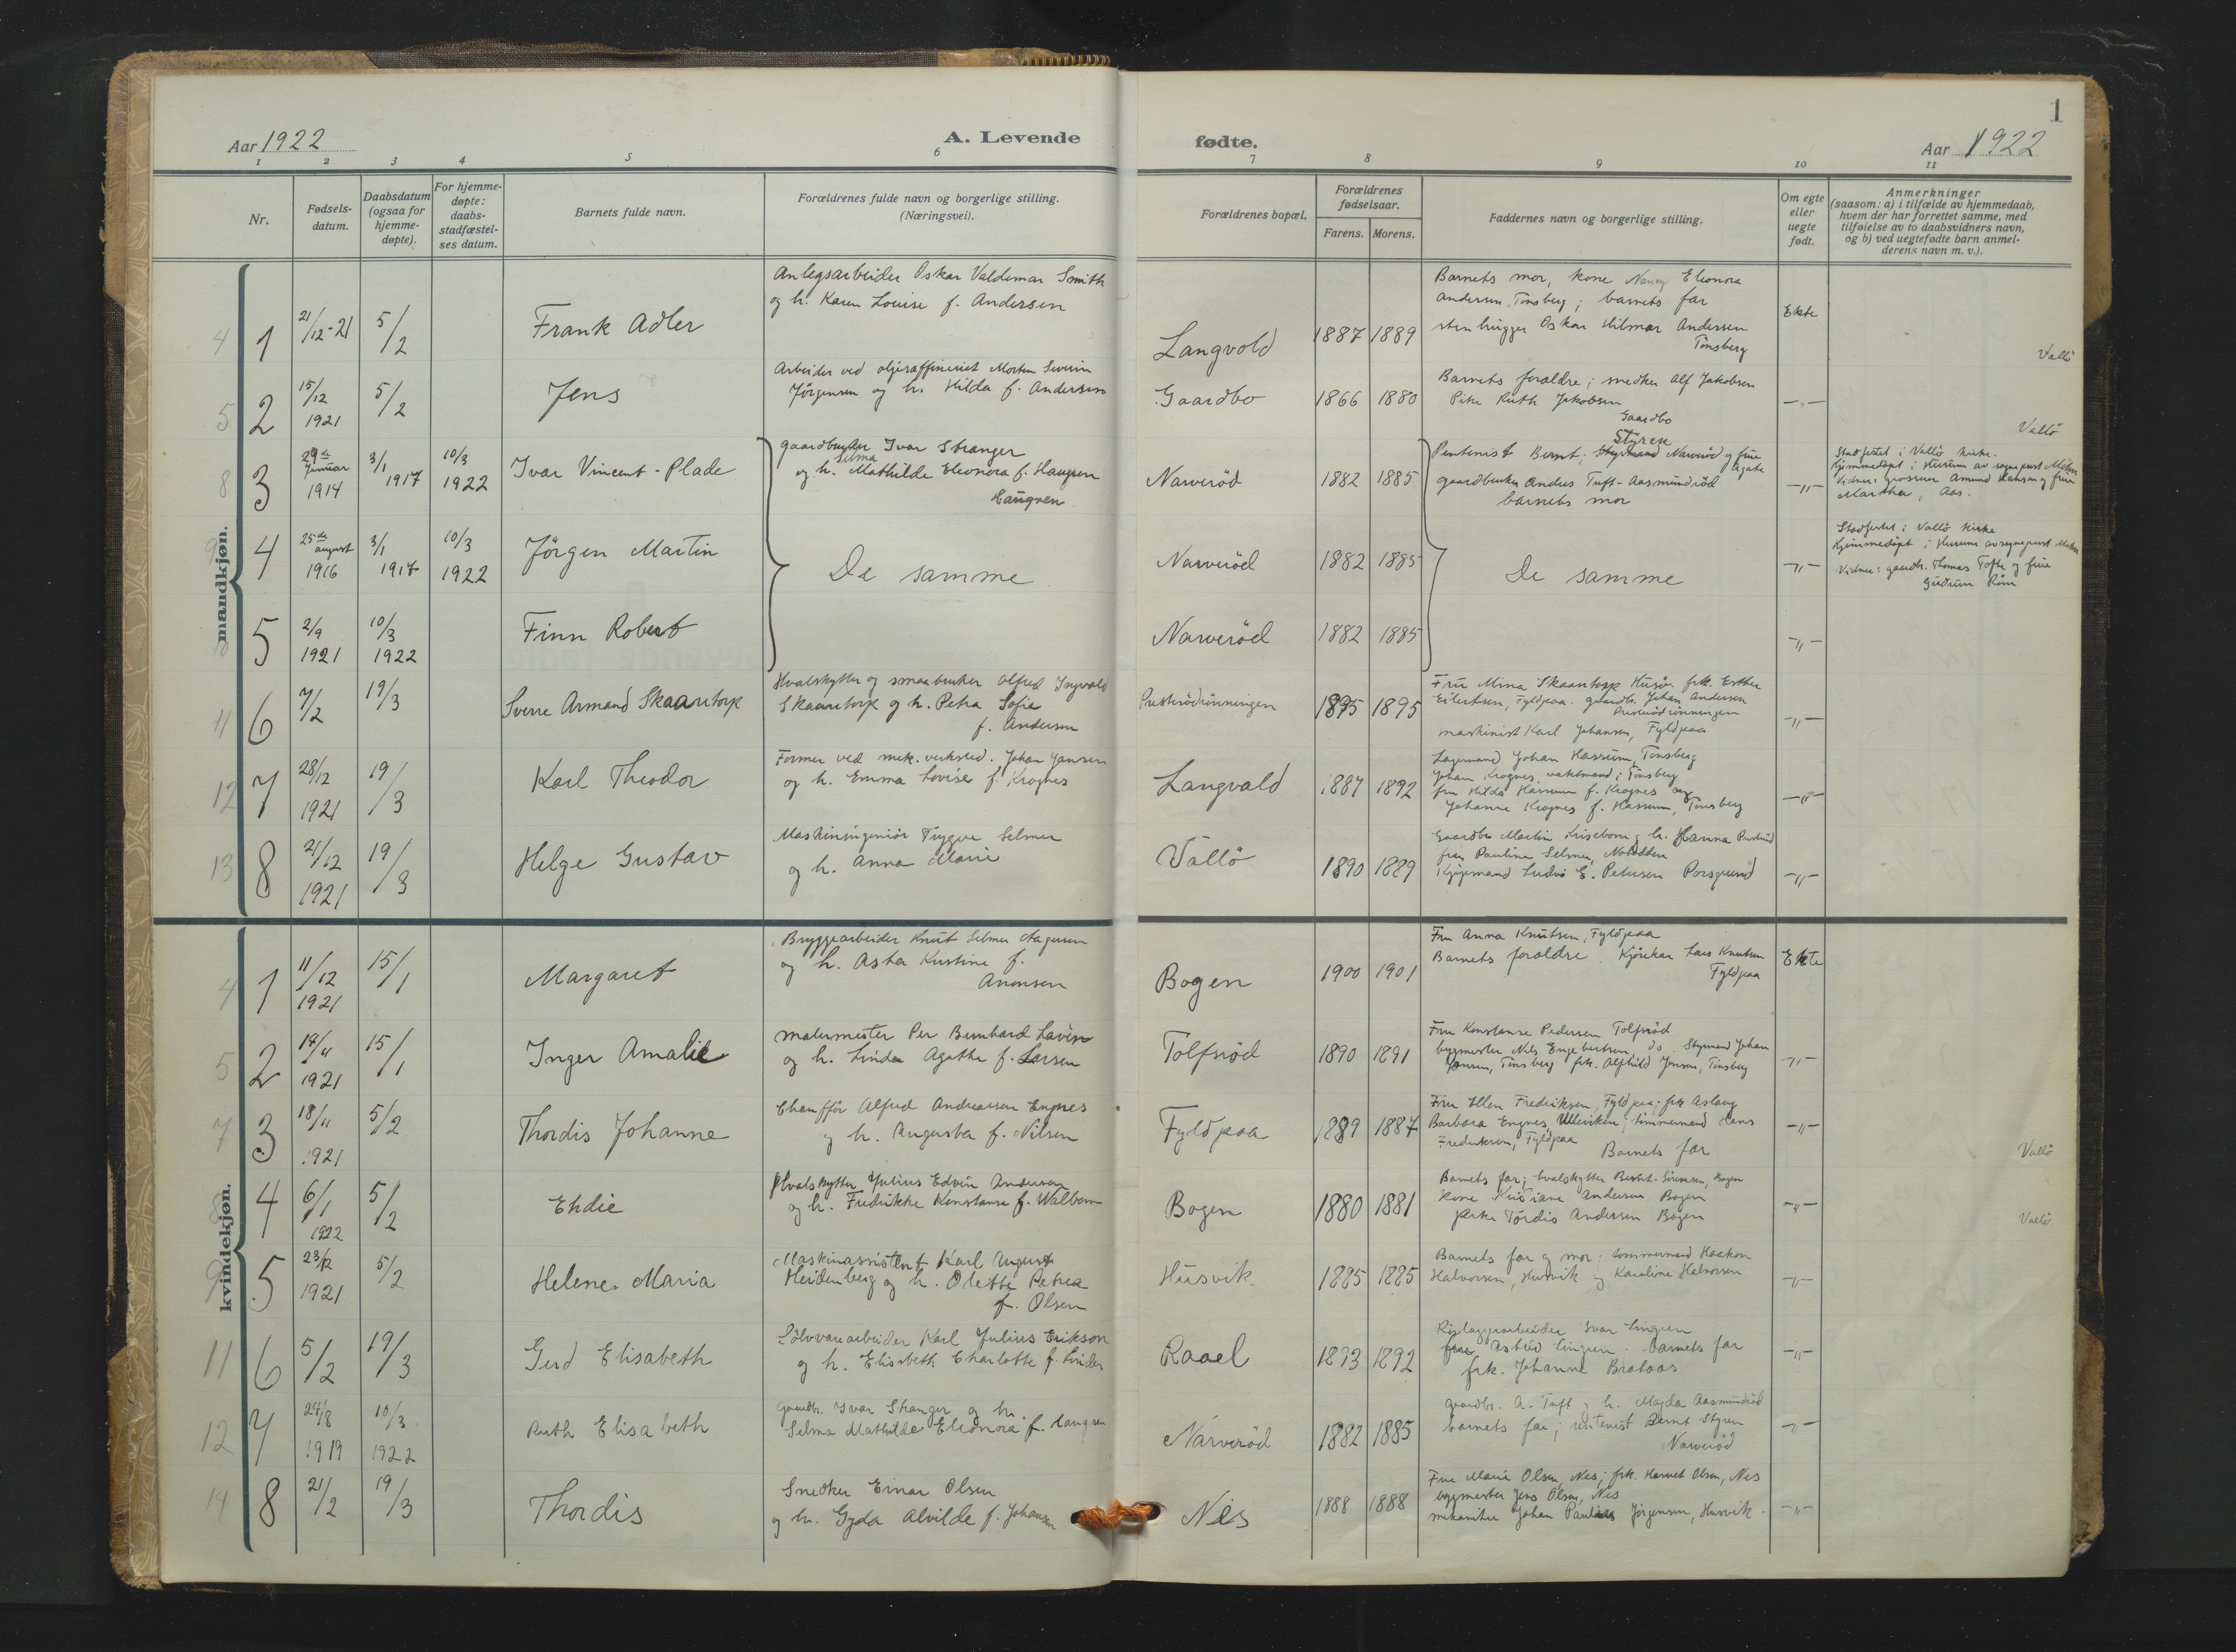 1
Aar 1922
A. Levende
fødte.
Aar 1922
1 2 3 4 5 6 7 8 9 10 11
Nr.
Fødsels-
datum.
Daabsdatum
(ogsaa for
hjemme-
døpte).
For hjemme-
døpte:
daabs-
stadfæstel-
ses datum.
Barnets fulde navn.
Forældrenes fulde navn og borgerlige stilling.
(Næringsvei).
Forældrenes bopæl.
Forældrenes
fødselsaar.
Farens. Morens.
Faddernes navn og borgerlige stilling.
Om egte
eller
uegte
født.
Anmerkninger
(saasom: a) i tilfælde av hjemmedaab,
hvem der har forrettet samme, med
tilføielse av to daabsvidners navn,
og b) ved uegtefødte barn anmel-
derens navn m. v.).
mandkjøn.
4 1 21/12-21 5/2 Frank Adler
Anlegsarbeider Oskar Valdemar Smith
og h. Karen Louise f. Andersen
Langvold 1887 1889
Barnets mor, kone Nancy Eleonora
Andersen, Tönsberg; barnets far
stenhugger Oskar Hilmar Andersen
Tönsberg
Ekte
Vallö
5 2 15/12 1921 5/2 Jens
Arbeider ved oljeraffineriet Morten Severin
Jørgensen og h. Hilda f. Andersen
Gaardbo 1866 1880
Barnets forældre; snedker Alf Jakobsen
Pike Ruth Jakobsen
Gaardbo
—„—
Vallö
8 3 29de Januar 1914 3/1 1917 10/3 1922 Ivar Vincent-Plade
gaardbruker Ivar Stranger
og h. Selma Mathilde Eleonora f. Haugren
Haugren
Narveröd 1882 1885
Rentenist Bernt Styren Narveröd og frue Agate
gaardbruker Anders Tuft-Aasmundröd
barnets mor
—„—
Stadfestet i Vallö kirke.
Hjemmedöpt i Hurum av sogneprest
Vidner: grosserer Amund Hansen og frue
Martha, Aas.
9 4 25de august 1916 3/1 1917 10/3 1922 Jörgen Martin
De samme
Narveröd 1882 1885
De samme
—„—
Stadfestet i Vallö kirke
Hjemmedöpt i Hurum av sogneprest
Vidner: gaardb. Thomas Tofte og frue
Gudrun
5 2/9 1921 10/3 1922 Finn Robert
Narveröd 1882 1885
—„—
11 6 7/2 19/3 Sverre Armand Skaantorp
Hvalskytter og smaabruker Alfred Ingvald
Skaantorp og h. Petra Sofie
f. Andersen
Presterödrönningen 1895 1895
Fru Mina Skaantorp Husö. frk. Esther
Eilertsen, Fyldpaa. gaardb. Johan Andersen
Presterödrönningen
maskinist Karl Johansen, Fyldpaa
—„—
12 7 28/12 1921 19/3 Karl Theodor
Former ved mek. verksted. Johan Jansen
og h. Emma Lovise f. Krognes
Langvald 1887 1892
Lagermand Johan Hassum, Tönsberg
Johan Krognes, vaktmand i Tönsberg
fru Hilda Hassum f. Krognes og
Johanne Krognes f. Hassum, Tönsberg
—„—
13 8 21/12 1921 19/3 Helge Gustav
Maskiningeniör Trygve Selmer
og h. Anna Marie
Vallö 1890 1889
Gaardbr Martin og h. Hanna
fru Pauline Selmer, Notodden
E. Petersen Porsgrund
—„—
kvindekjøn.
4 1 11/12 1921 15/1 Margaret
Bryggearbeider Knut Selmer Aagesen
og h. Asta Kristine f.
Aronsen
Bogen 1900 1901
Fru Anna Knutsen, Fyldpaa
Barnets forældre. Kjörekar Lars Knutsen
Fyldpaa
Ekte
5 2 18/11 1921 15/1 Inger Amalie
malermester Per Bernhard Lavin
og h. Linda Agathe f. Larsen
Tolfsröd 1890 1891
Fru Konstanse Pedersen Tolfsröd
bygmester Nils Engebretsen, do. Styrmand Johan
Jensen, Tönsberg frk. Alfhild Jensen, Tönsberg
—„—
7 3 18/11 1921 5/2 Thordis Johanne
Chaufför Alfred Andreassen Engnes
og h. Augusta f. Nilsen
Fyldpaa 1889 1887
Fru Ellen Fredriksen, Fyldpaa; frk Aslaug
Barbara Engnes, Ulleviken; tömmermand Hans
Fredriksen, Fyldpaa Barnets far
—„—
Vallö
8 4 6/1 1922 5/2 Ehdie
Hvalskytter Julius Edvin Andersen
og h. Fredrikke Konstanse f. Walbom
Bogen 1880 1881
Barnets far; hvalskytter Bernt Sörensen, Bogen
kone Kristiane Andersen Bogen
pike Tordis Andersen Bogen
—„—
Vallö
9 5 23/12 1921 5/2 Helene Maria
Maskinassistent Karl August
Heidenberg og h. Olette Petrea
f. Olsen
Husvik 1885 1885
Barnets far og mor; tømmermand Haakon
Halvorsen, Husvik og Karoline Halvorsen
—„—
11 6 5/2 19/3 Gerd Elisabeth
Sölvvarearbeider Karl Julius Erikson
og h. Elisabeth Charlotte f. Linder
Raael 1893 1892
Rörlæggerarbeider Ivar Lingren
frue Astrid Lingren. Barnets far
frk. Johanne Brataas
—„—
12 7 24/8 1919 10/3 1922 Ruth Elisabeth
Gaardb. Ivar Stranger og h.
Selma Mathilde Eleonora f. Haugren
Narveröd 1882 1885
gaardbr. A. Tuft og h. Magda Aasmundröd
barnets far; rentenist Bernt Styren
Narveröd
—„—
14 8 21/2 19/3 Thordis
Snedker Einar Olsen
og h. Gyda Alvilde f. Johansen
Nes 1888 1888
Fru Marie Olsen, Nes; frk. Harriet Olsen, Nes
bygmester Jens Olsen, Nes
mekaniker Johan Paulius Jörgensen, Husvik
—„—